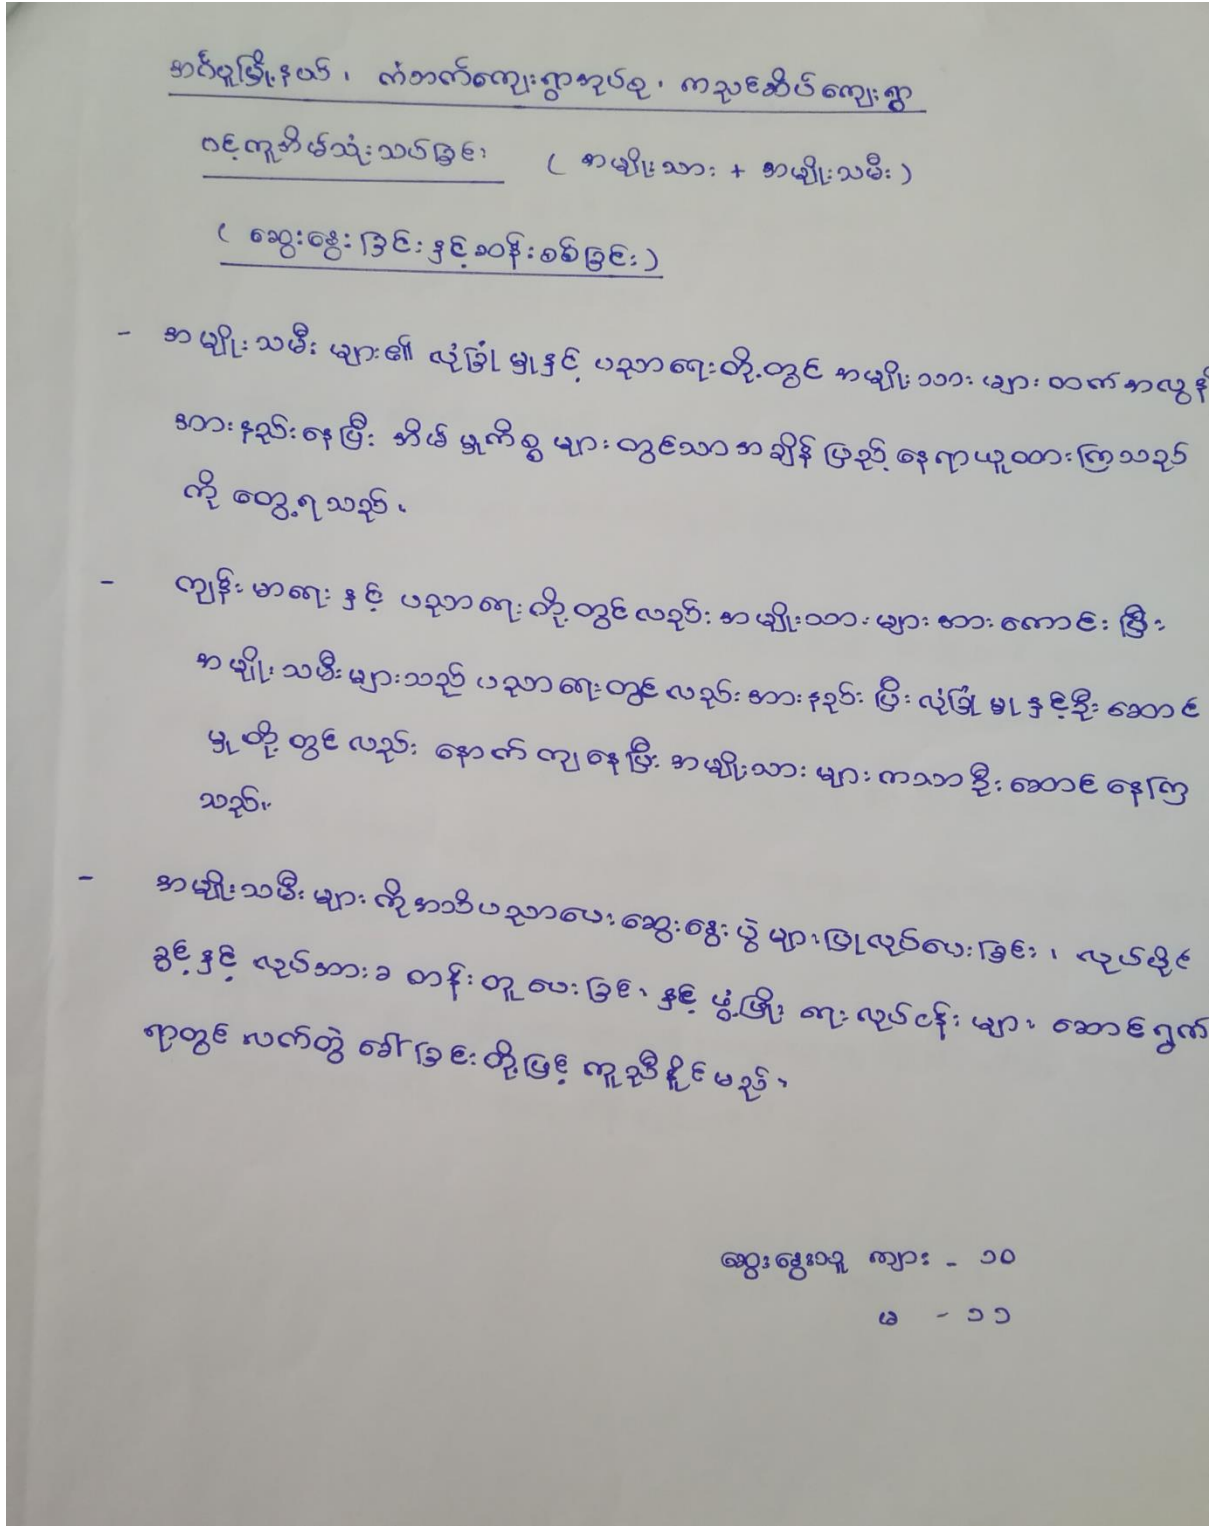 အင်္ဂပူမြို့နယ်၊ ကံဘက်ကျေးရွာအုပ်စု၊ ကညင်ဆိပ်ကျေးရွာ
ပင့်ကူအိမ်သုံးသပ်ခြင်း (အမျိုးသား + အမျိုးသမီး)
(ဆွေးနွေးခြင်းနှင့်ဆန်းစစ်ခြင်း)
- အမျိုးသမီးများ၏ လုံခြုံမှုနှင့် ပညာရေးတို့တွင် အမျိုးသားများထက်အလွန်
အားနည်းနေပြီး အိမ်မှုကိစ္စများတွင်သာအချိန်ပြည့်နေရာယူထားကြသည်
ကို တွေ့ရသည်။
- ကျန်းမာရေးနှင့် ပညာရေးတို့တွင်လည်းအမျိုးသားများအားကောင်းပြီး
အမျိုးသမီးများသည်ပညာရေးတွင်လည်းအားနည်းပြီးလုံခြုံမှုနှင့်ဦးဆောင်
မှုတို့တွင်လည်း နောက်ကျနေပြီး အမျိုးသားများကသာဦးဆောင်နေကြ
သည်။
- အမျိုးသမီးများကိုအသိပညာပေးဆွေးနွေးပွဲများပြုလုပ်ပေးခြင်း၊ လုပ်ပိုင်
ခွင့်နှင့် လုပ်အားခတန်းတူပေးခြင်းနှင့် ဖွံ့ဖြိုးရေးလုပ်ငန်းများ ဆောင်ရွက်
ရာတွင် လက်တွဲခေါ်ခြင်းတို့ဖြင့် ကူညီနိုင်မည်။
ဆွေးနွေးသူ ကျား - ၁၀
မ - ၁၁